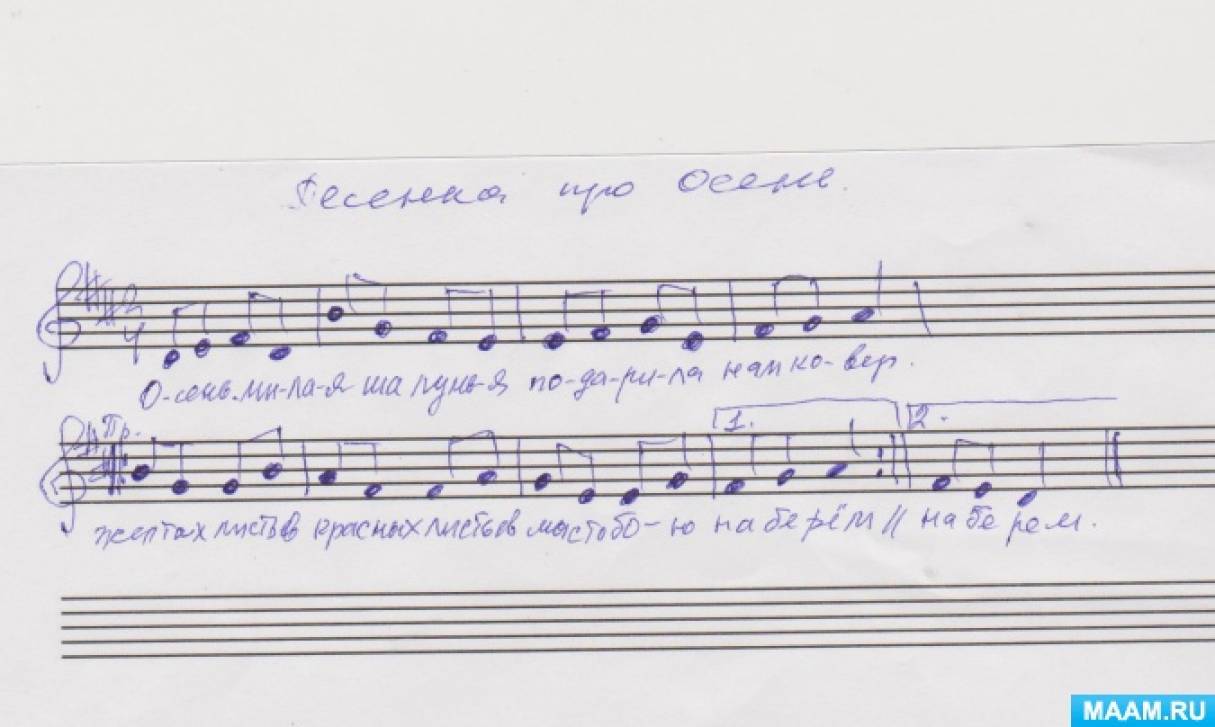 Песенка про Осень.
2
4
О-сень-ми-ла-я ша лунь-я по-да-ри-ла нам ко-вер.
Пр. 1. 2.
желтых листьев красных листьев мы с тобо-ю наберём // на бе рем.
MAAM.RU